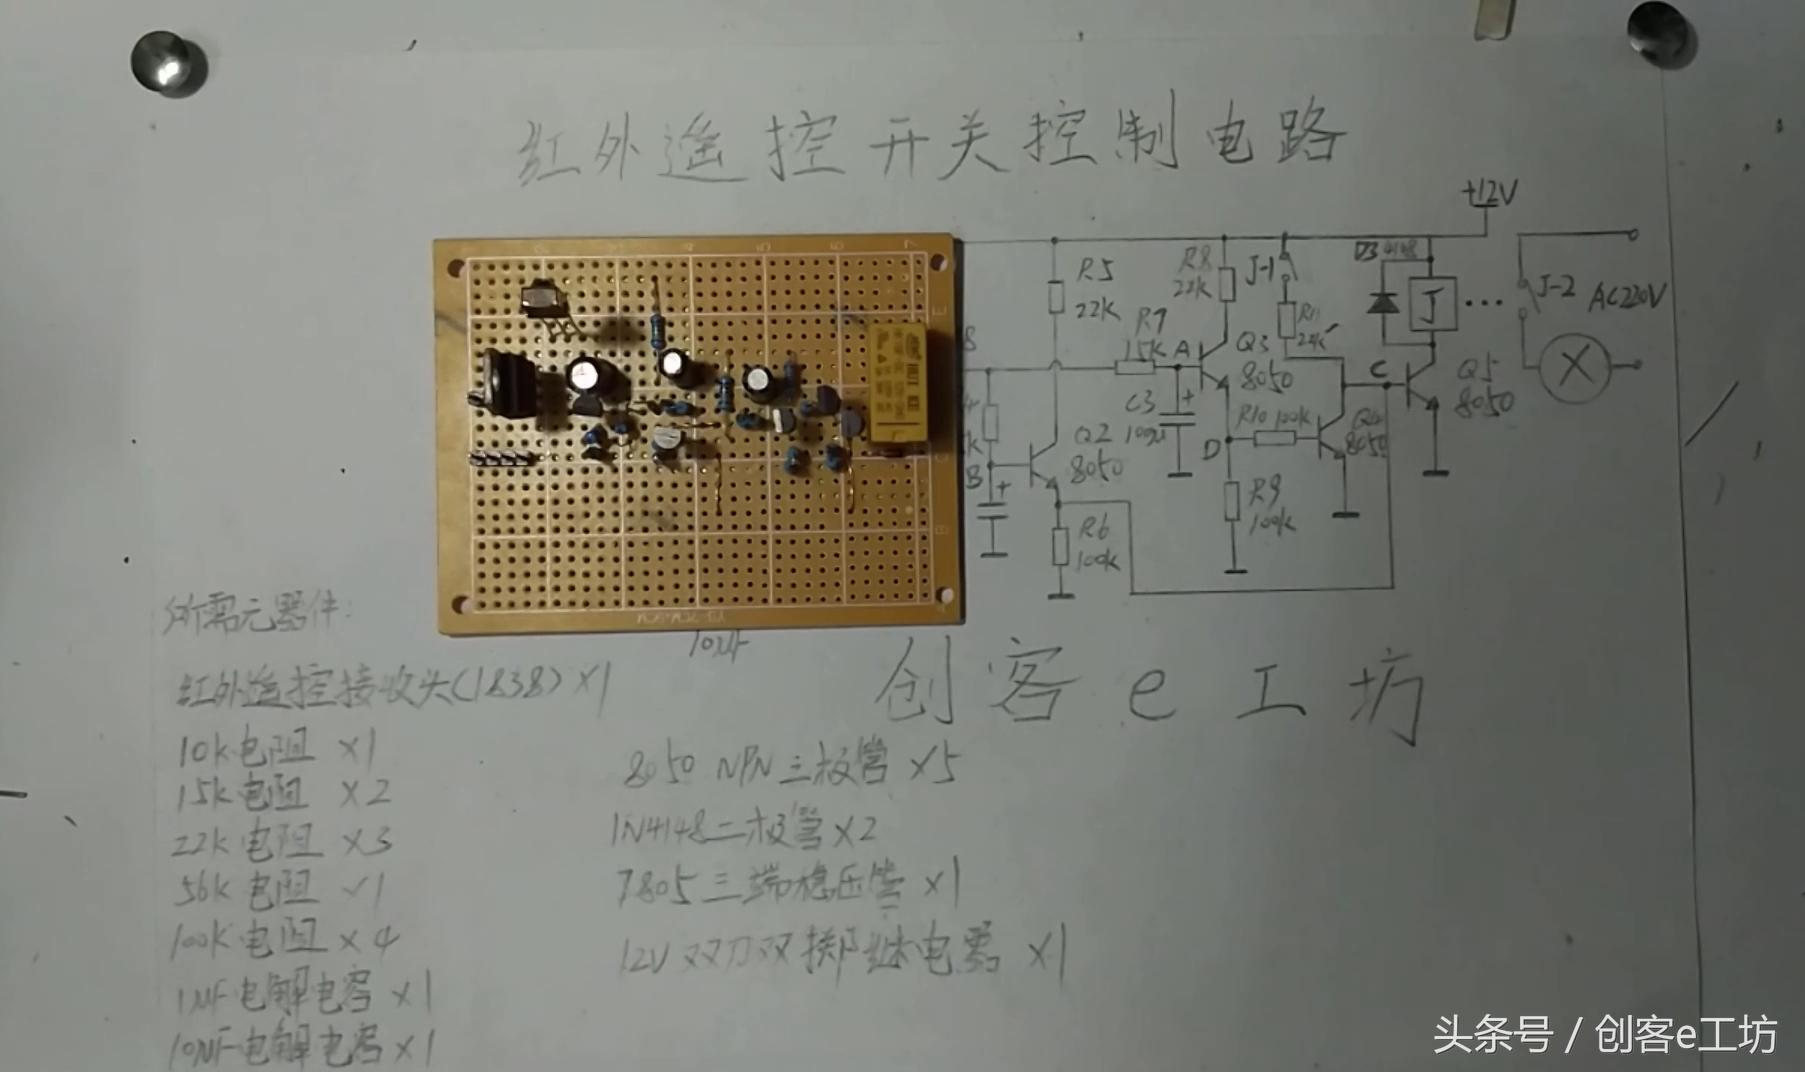 红外遥控开关控制电路
+12V
R5
22K
R8
22K
J-1
R11
22K
D3 4148
J
J-2
AC220V
R7
15K
A
Q3
8050
C
Q5
8050
C3
100μ
R10 100K
Q4
8050
D
Q2
8050
B
R9
100K
R6
100K
10μF
所需元器件:
创客e工坊
红外遥控接收头(1838)×1
10K电阻 ×1
15K电阻 ×2
22K电阻 ×3
56K电阻 ×1
100K电阻 ×4
1μF电解电容 ×1
10μF电解电容 ×1
8050 NPN三极管 ×5
1N4148二极管 ×2
7805三端稳压管 ×1
12V双刀双掷继电器 ×1
头条号 / 创客e工坊